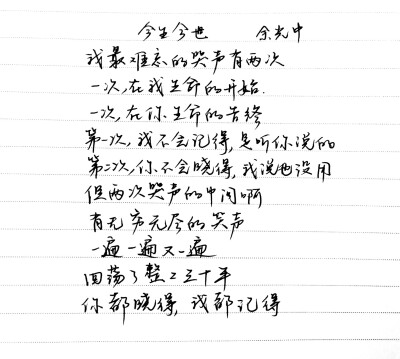 今生今世 余光中
我最难忘的哭声有两次
一次,在我生命的开始.
一次,在你生命的告终
第一次,我不会记得,是听你说的
第二次,你不会晓得,我说也没用
但两次哭声的中间啊
有无穷无尽的笑声
一遍一遍又一遍
回荡了整〻三十年
你都晓得,我都记得